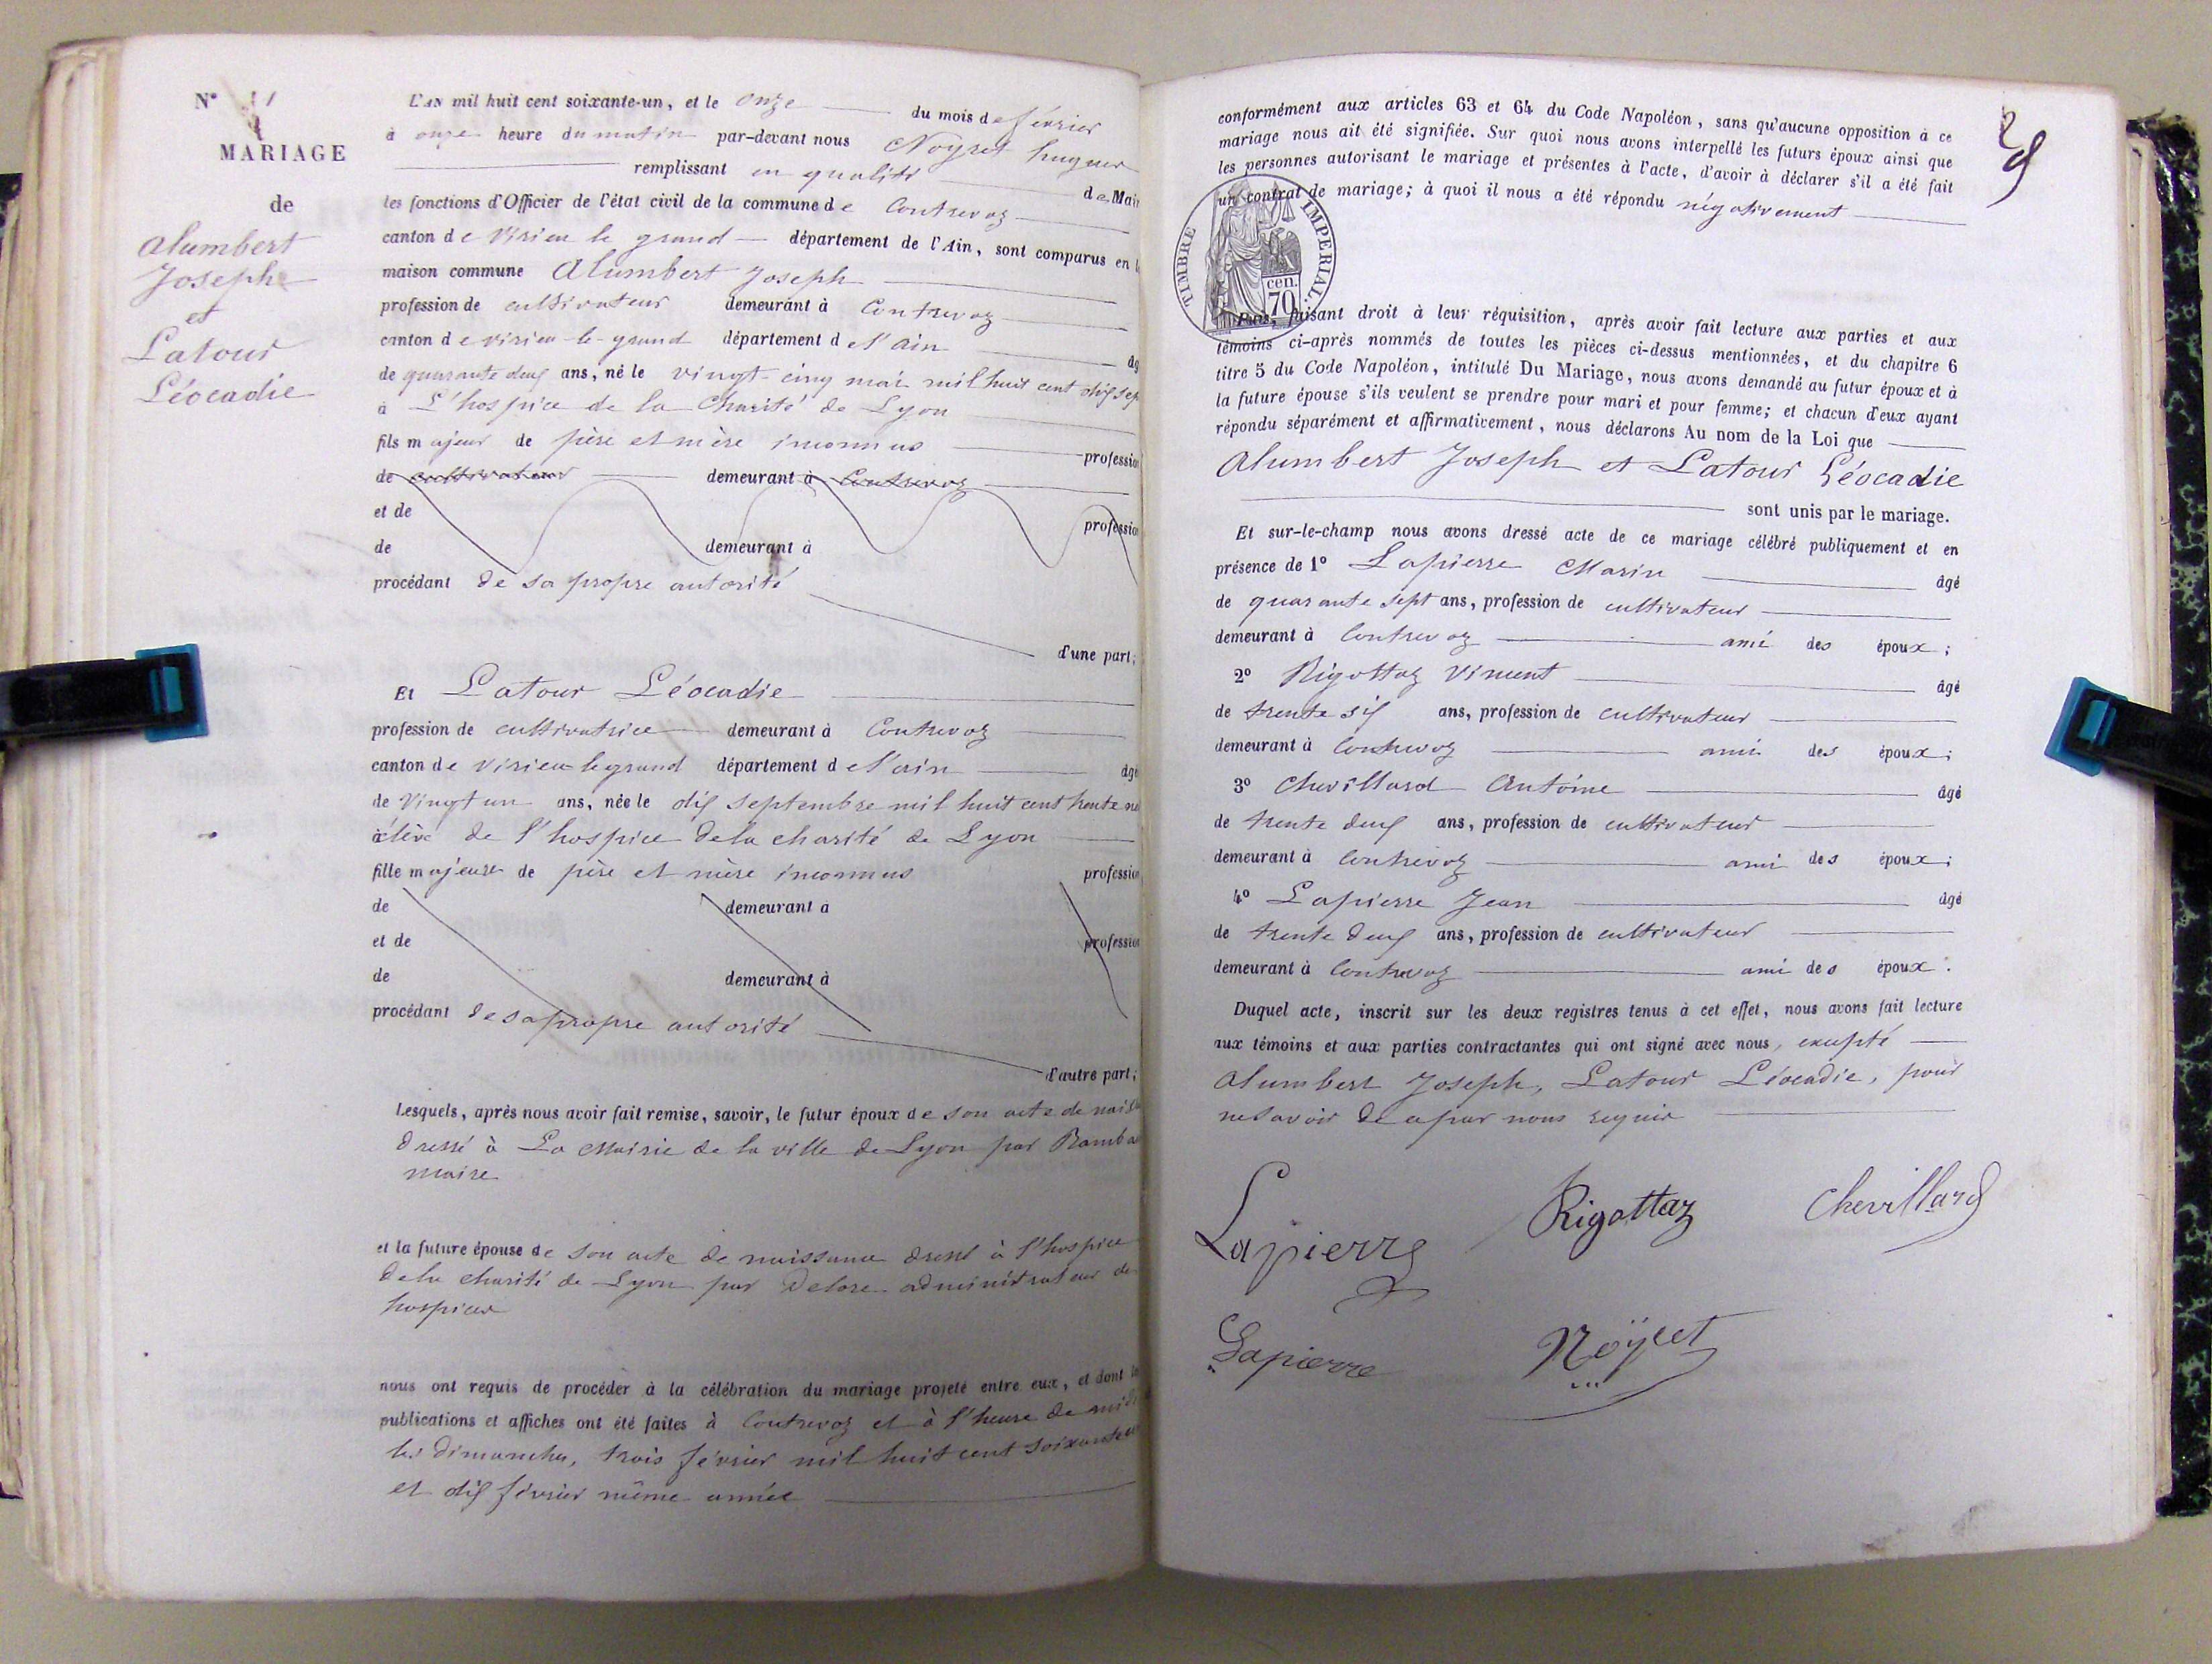 N°
MARIAGE
de
Alumbert
Joseph
et
Latour
Léocadie
L'AN mil huit cent soixante-un, et le onze du mois de février
à onze heure du matin par-devant nous Noyret hugues
remplissant en qualité de Mair
les fonctions d'Officier de l'état civil de la commune de Contrevoz
canton de Virieu le grand département de l'Ain, sont comparus en l
maison commune Alumbert Joseph
profession de cultivateur demeurant à Contrevoz
canton de virieu-le-grand département de l'ain âg
de quarante deux ans, né le vingt-cinq mai mil huit cent dix sep
à L'hospice de la Charité de Lyon
fils majeur de père et mère inconnus profession
de cultivateur demeurant à Contrevoz
et de profession
de demeurant à
procédant de sa propre autorité
d'une part;
Et Latour Léocadie
profession de cultivatrice demeurant à Contrevoz
canton de virieu legrand département de l'ain âgé
de vingt un ans, née le dix septembre mil huit cent trente ne
élève de l'hospice dela charité de Lyon
fille majeure de père et mère inconnus profession
de demeurant à
et de profession
de demeurant à
procédant de sa propre autorité
d'autre part;
Lesquels, après nous avoir fait remise, savoir, le futur époux de son acte de naiss
dressé à La Mairie de la ville de Lyon par Ramba
maire
et la future épouse de son acte de naissance dressé à l'hospice
dela charité de Lyon par Delore administrateur de
hospices
nous ont requis de procéder à la célébration du mariage projeté entre eux, et dont le
publications et affiches ont été faites à Contrevoz et à l'heure de midi
les dimanches, trois février mil huit cent soixante un
et dix février même année
conformément aux articles 63 et 64 du Code Napoléon, sans qu'aucune opposition à ce
mariage nous ait été signifiée. Sur quoi nous avons interpellé les futurs époux ainsi que
les personnes autorisant le mariage et présentes à l'acte, d'avoir à déclarer s'il a été fait
un contrat de mariage; à quoi il nous a été répondu négativement
TIMBRE IMPERIAL.
cen.
70
Puis, faisant droit à leur réquisition, après avoir fait lecture aux parties et aux
témoins ci-après nommés de toutes les pièces ci-dessus mentionnées, et du chapitre 6
titre 5 du Code Napoléon, intitulé Du Mariage, nous avons demandé au futur époux et à
la future épouse s'ils veulent se prendre pour mari et pour femme; et chacun d'eux ayant
répondu séparément et affirmativement, nous déclarons Au nom de la Loi que
Alumbert Joseph et Latour Léocadie
sont unis par le mariage.
Et sur-le-champ nous avons dressé acte de ce mariage célébré publiquement et en
présence de 1° Lapierre Marin âgé
de quarante sept ans, profession de cultivateur
demeurant à Contrevoz ami des époux;
2° Rigottaz Vincent âgé
de trente six ans, profession de cultivateur
demeurant à Contrevoz ami des époux;
3° Chevillard Antoine âgé
de trente deux ans, profession de cultivateur
demeurant à Contrevoz ami des époux;
4° Lapierre Jean âgé
de trente deux ans, profession de cultivateur
demeurant à Contrevoz ami des époux.
Duquel acte, inscrit sur les deux registres tenus à cet effet, nous avons fait lecture
aux témoins et aux parties contractantes qui ont signé avec nous, excepté
Alumbert Joseph, Latour Léocadie, pour
ne savoir de ce par nous requis
Lapierre Rigottaz Chevillard
Lapierre Noÿret